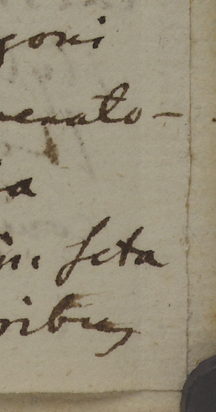 goni
venato-
a
in seta
ribus